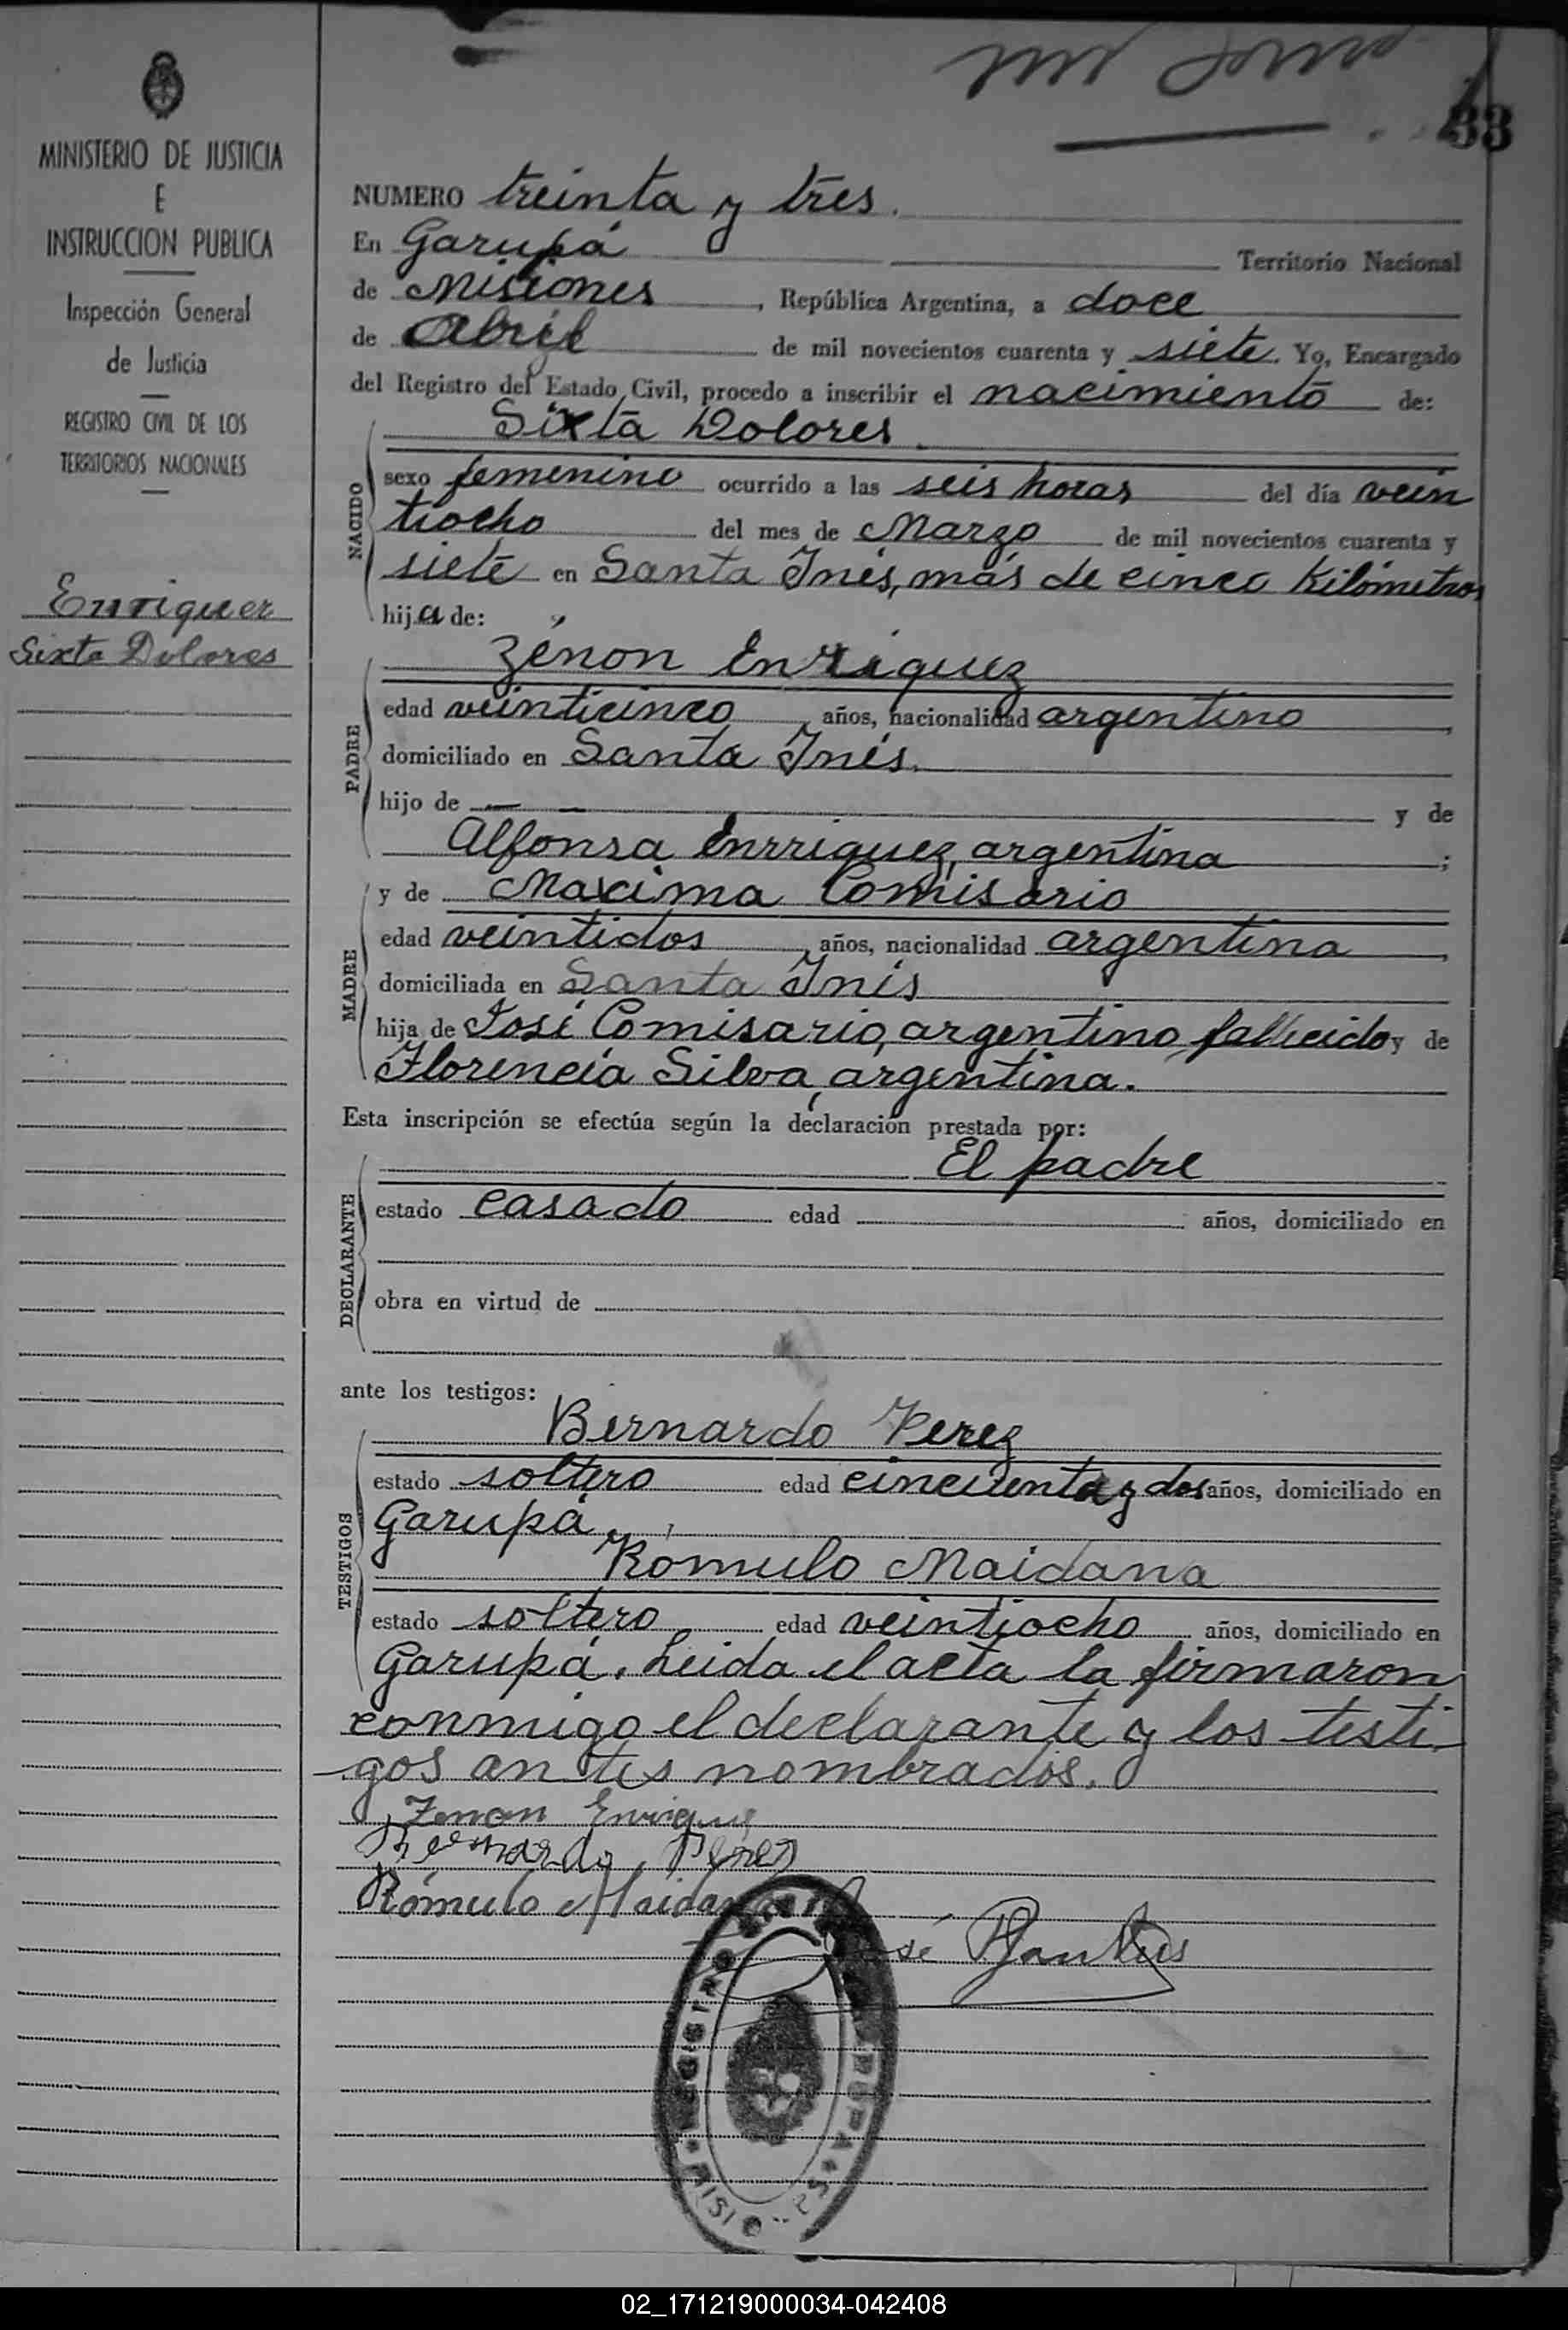 33
MINISTERIO DE JUSTICIA
E
INSTRUCCION PUBLICA
Inspección General
de Justicia
REGISTRO CIVIL DE LOS
TERRITORIOS NACIONALES
Enrriquez
Sixta Dolores
NUMERO treinta y tres.
En Garupá Territorio Nacional
de Misiones, República Argentina, a doce
de Abril de mil novecientos cuarenta y siete. Yo, Encargado
del Registro del Estado Civil, procedo a inscribir el nacimiento de:
NACIDO
Sixta Dolores.
sexo femenino ocurrido a las seis horas del día vein
tiocho del mes de Marzo de mil novecientos cuarenta y
siete en Santa Inés, más de cinco Kilómetros
hija de:
PADRE
Zenón Enriquez
edad veinticinco años, nacionalidad argentino,
domiciliado en Santa Inés.
hijo de — — y de
Alfonsa Enrriquez, argentina;
MADRE
y de Maxima Comisario
edad veintidos, años, nacionalidad argentina,
domiciliada en Santa Inés
hija de José Comisario, argentino, fallecido y de
Florencia Silva, argentina.
Esta inscripción se efectúa según la declaración prestada por:
DECLARANTE
El padre
estado casado edad años, domiciliado en
obra en virtud de
ante los testigos:
TESTIGOS
Bernardo Perez
estado soltero edad cincuenta y dos años, domiciliado en
Garupá.
Rómulo Maidana
estado soltero edad veintiocho años, domiciliado en
Garupá. Leida el acta la firmaron
conmigo el declarante y los testi-
gos antes nombrados.
Zenon Enrique
Bernardo Perez
Rómulo Maidana
José
REGISTRO
02_171219000034-042408